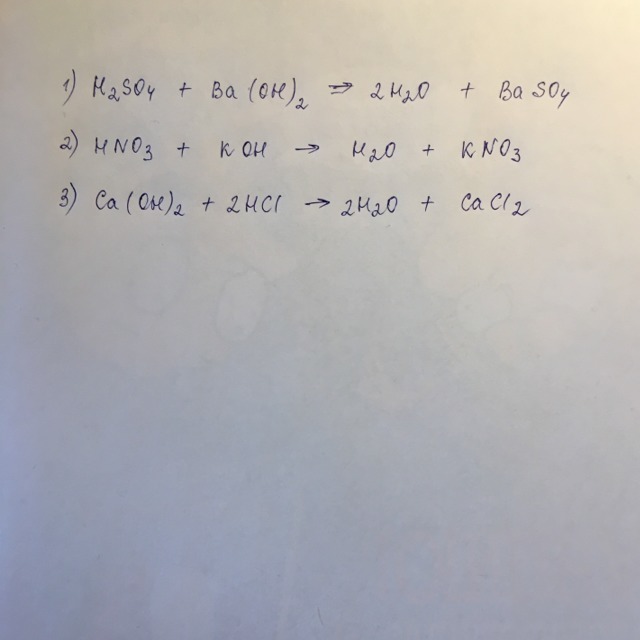 1) H₂SO₄ + Ba(OH)₂ ⇒ 2H₂O + BaSO₄
2) HNO₃ + KOH → H₂O + KNO₃
3) Ca(OH)₂ + 2HCl → 2H₂O + CaCl₂